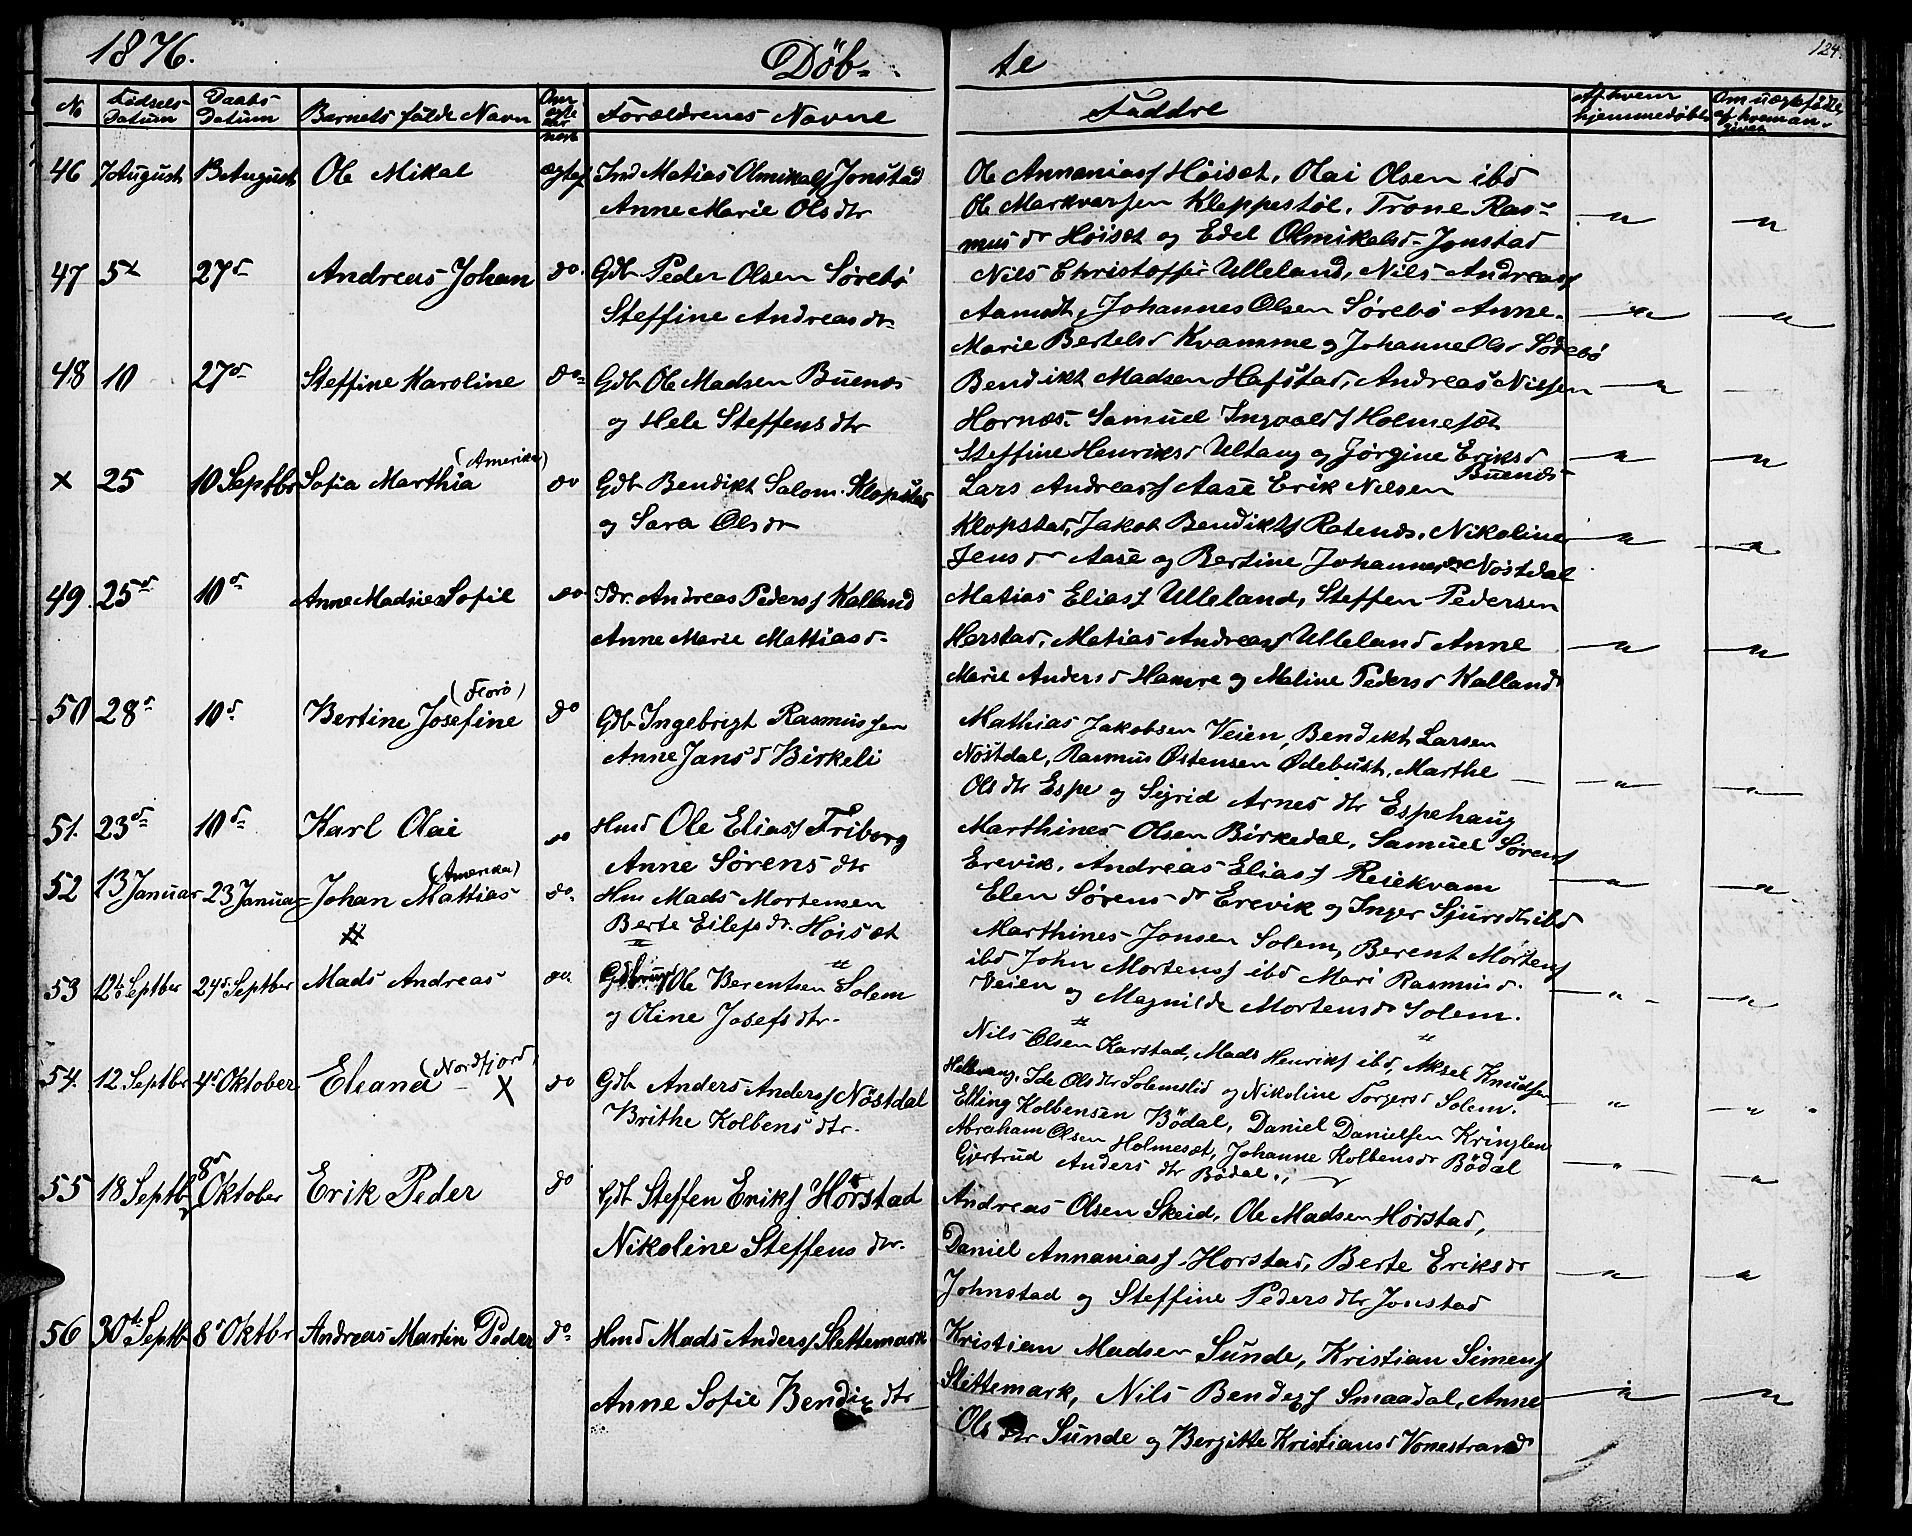 1876.
Döb- te
124.
No Fødsels Datum Daabs Datum Barnets fulde Navn Om ægte eller uægte Forældrenes Navne Faddre Af hvem hjemmedøbt Om uægtefødte, af hvem angiven
46 7 August 13 August Ole Mikal ægtef Ind Matias Olmikalsf Jonstad
Anne Marie Olsdtr
Ole Annaniasf Höiset, Olai Olsen ibd
Ole Markvarsen Kleppestöl, Trone Ras-
musdr Höiset og Edel Olmikelsd. Jonstad
47 5t 27d Andreas Johan do. Gdb Peder Olsen Sørebö
Steffine Andreasdr.
Nils Christoffer Ulleland, Nils Andreasf
Aamodt, Johannes Olsen Sørebö Anne
Marie Bertelsd Kvamme og Johanne Olsd Sørebö
48 10 27d Steffine Karoline do Gdb Ole Madsen Buenes
og Hele Steffensdtr
Bendikt Madsen Hafstad, Andreas Nilsen
Hornæs. Samuel Ingvaldsf Holmeset
Steffine Henriksd Ultang og Jörgine Eriksd
Buenes
x 25 10 Septbr Sofia Marthia (Amerika) do Gdb Bendikt Salom. Klopstad
og Sara Olsdr
Lars Andreasf Aase Erik Nilsen
Klopstad, Jakob Bendiktsf Rotenes, Nikoline
Jensdr Aase og Bertine Johannesdr Nöstdal
49. 25d 10d Anne Madsine Sofie do Idr. Andreas Pedersf Kalland
Anne Marie Mattiasd.
Matias Eliasf Ulleland, Steffen Pedersen
Horstad, Matias Andreasf Ulleland Anne
Marie Andersd Hamre og Maline Pedersd Kalland
50 28d 10d. Bertine Josefine (Florö) do Gdb Ingebrigt Rasmussen
Anne Jansd Birkeli
Mathias Jakobsen Veien, Bendikt Larsen
Nöstdal, Rasmus Østensen Ødebust, Marthe
Olsdtr Espe og Sigrid Arnesdtr Espehaug
51. 23d 10d Karl Olai do Hmd Ole Eliasf Friborg
Anne Sørensdtr
Marthines Olsen Birkedal, Samuel Sørensf
Erevik, Andreas Eliasf Reiekvam
Elen Sørensdr Erevik og Inger Sjursdtr ibd
52 13 Januar 23 Januar Johan Mattias (Amerika) do. Hm Mads Mortensen
Berte Eilefsdr. Höiset
Marthines Jonsen Solem, Berent Mortensf
ibd John Mortensf ibd Mari Rasmusd.
Veien og Magnilde Mortensdr Solem.
53 12te Septber 24d Septber Mads Andreas do. Ole Berentsen Solem
og Oline Josefsdtr.
Nils Olsen Karstad, Mads Henriksf ibd, Aksel Knudsen
Hellevang, Ide Olsdtr Solemslid og Nikoline Torgersd Solem.
54. 12 Septbr 4d Oktober Eleana (Nordfjord) X do Gdb Anders Andersf Nöstdal
Brithe Kolbensdtr.
Elling Kolbensen Bödal, Daniel Danielsen Kringlen
Abraham Olsen Holmeset, Johanne Kolbensdr Bödal
Gjertrud Andersdtr Bödal.
55 18 Septbr 8d Oktober Erik Peder do Gdb Steffen Eriksf Hörstad
Nikoline Steffensdtr.
Andreas Olsen Skeid, Ole Madsen Hörstad,
Daniel Annaniasf. Horstad, Berte Eriksdr
Johnstad og Steffine Pedersdtr Jonstad
56 30te Septb 8d Oktbr Andreas Martin Peder do. Hmd Mads Andersf Slettemark
Anne Sofie Bendixdtr
Kristian Madsen Sunde, Kristian Simensf
Slettemark, Nils Bendixsf Smaadal, Anne
Olsdtr Sunde og Bergitte Kristiansd Vonestrand